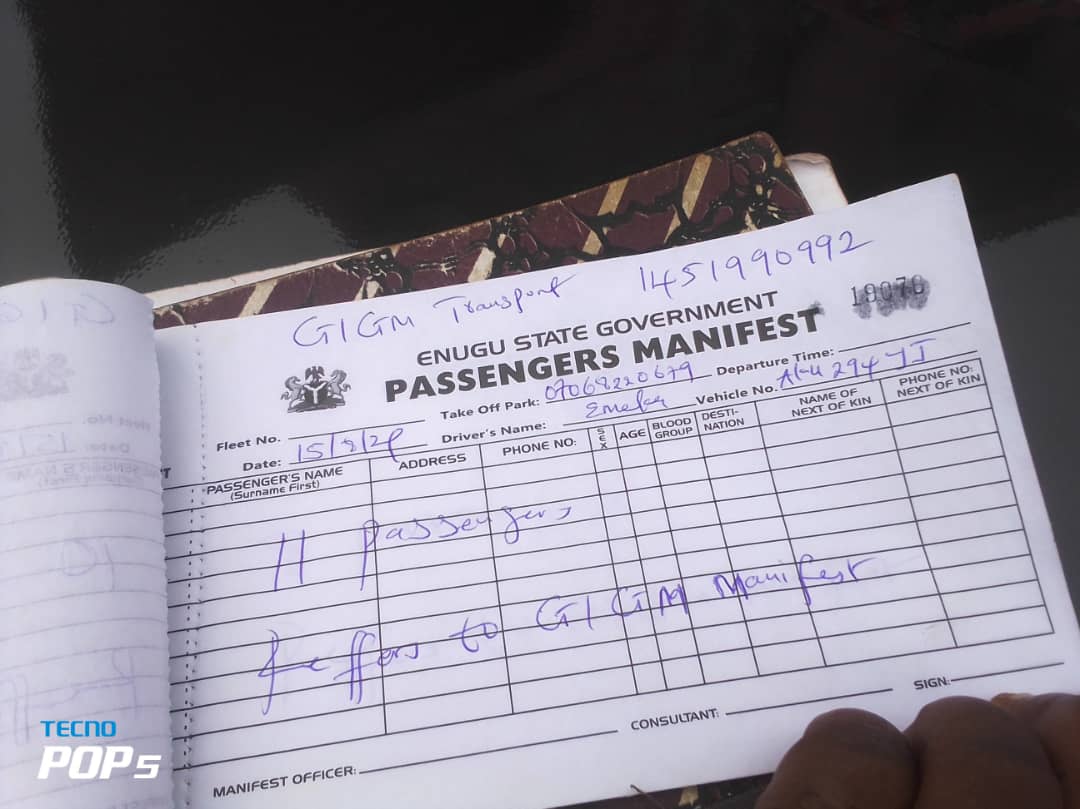 GIGM Transport 1451990992
19070
ENUGU STATE GOVERNMENT
PASSENGERS MANIFEST
Fleet No.
Take Off Park: 07068220679
Departure Time:
Date: 15/8/2
Driver's Name: Emeka
Vehicle No. 294
PASSENGER'S NAME
(Surname First)
ADDRESS
PHONE NO:
SEX
AGE
BLOOD GROUP
DESTI-
NATION
NAME OF
NEXT OF KIN
PHONE NO:
NEXT OF KIN
11 Passengers
Reffers to GIGM Manifest
MANIFEST OFFICER:
CONSULTANT:
SIGN:
TECNO
POP5